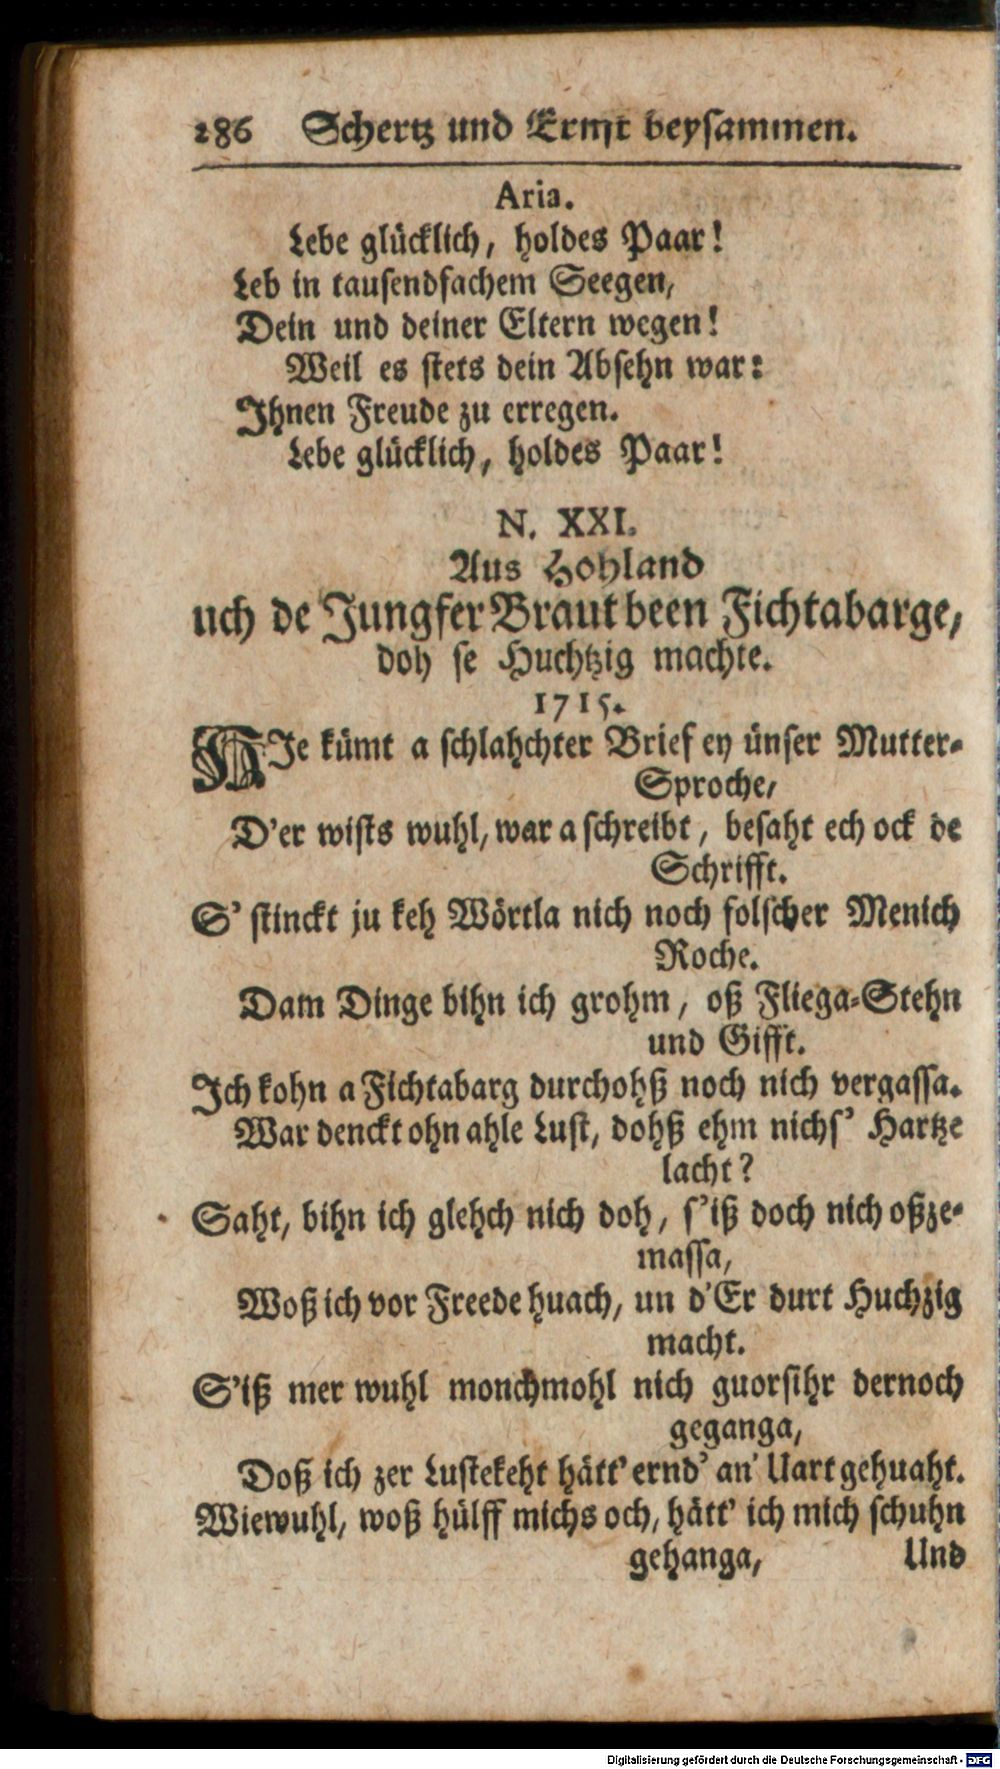 286 Schertz und Ernst beysammen.
Aria.
Lebe glücklich, holdes Paar!
Leb in tausendfachem Seegen,
Dein und deiner Eltern wegen!
Weil es stets dein Absehn war:
Ihnen Freude zu erregen.
Lebe glücklich, holdes Paar!
N. XXI.
Aus Hohland
uch de Jungfer Braut been Fichtabarge,
doh se Huchtzig machte.
1715.
HIe kümt a schlahchter Brief ey ünser Mutter-
Sproche,
D'er wists wuhl, war a schreibt, besaht ech ock de
Schrifft.
S' stinckt ju keh Wörtla nich noch folscher Menich
Roche.
Dam Dinge bihn ich grohm, oß Fliega-Stehn
und Gifft.
Ich kohn a Fichtabarg durchohß noch nich vergassa.
War denckt ohn ahle Lust, dohß ehm nichs' Hartze
lacht?
Saht, bihn ich glehch nich doh, s'iß doch nich oßze-
massa,
Woß ich vor Freede huach, un d'Er durt Huchzig
macht.
S'iß mer wuhl monchmohl nich guorsihr dernoch
geganga,
Doß ich zer Lustekeht hätt' ernd' an' Uart gehuaht.
Wiewuhl, woß hülff michs och, hätt' ich mich schuhn
gehanga, Und
Digitalisierung gefördert durch die Deutsche Forschungsgemeinschaft - DFG